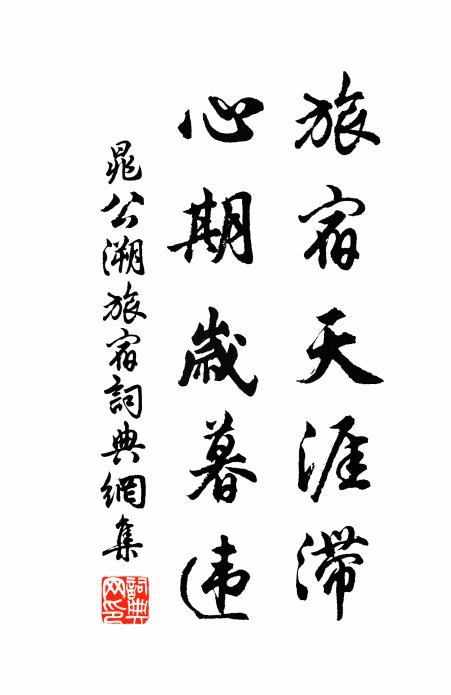 旅宿天涯滞
心期歲暮违
晁公溯旅宿詞典網集
詞典网印